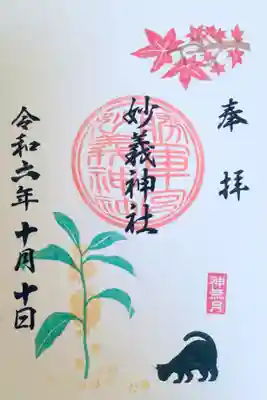 奉拝
妙義神社
令和六年十月十日
神無月